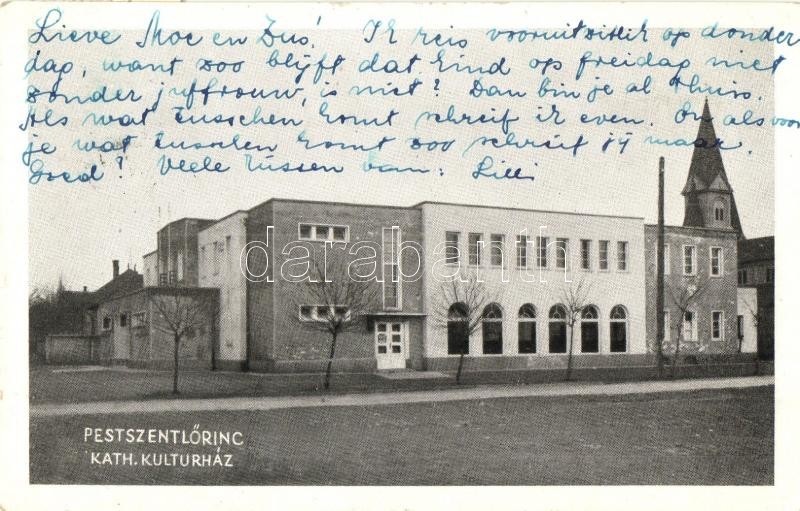 Lieve Moe en Zus! Ik reis vooruitzitlik op donder
dag, want zoo blyft dat kind op freidag niet
zonder juffrouw, is niet? Dan bin je al thuis.
Als wat tusschen komt schreif ik even. En als voor
je wat tusschen komt zoo schreif jy maar.
Goed? Veele küssen van: Lilli
darabanth
PESTSZENTLŐRINC
KATH. KULTURHÁZ